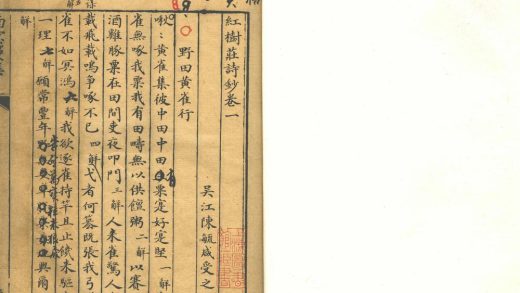 紅樹莊詩鈔卷一
吳江陳毓咸受之
野田黃雀行
黃雀集彼中田中田有粟寔好寔堅一解
雀無啄我粟我有田疇無以供饘粥二解以賽
酒雞豚粟在田間吏夜叩門三解人來雀驚人
載飛載鳴爭啄不已四解弋者何慕既張我弓
雀不如冥鴻六解我欲逐雀持竿且止飢來驅
一理七解願常豐年
解